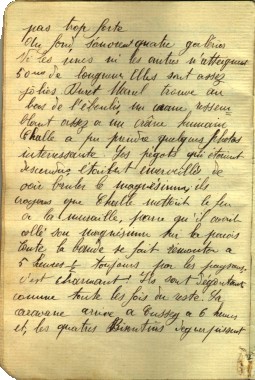 pas trop forte
Au fond s'ouvrent quatre galeries
Ni les unes ni les autres n'atteignent
de longueur Elles sont assez
jolies Huret Marcel trouve au
bas de l'éboulis un crane, ressem
blant assez a un crâne humain
Challe a pu prendre quelques photos
interessante. Les pigots qui étaient
descendus étaient émerveillés de
voir bruler le magnésium, ils
croyaient que Challe mettait le feu
a la muraille, parce qu'il avait
collé son magnésium sur la paroi
toute la bande se fait remonter a
5 heures toujours par les paysans.
c'est charmant! Ils sont
comme toute les fois du reste. La
caravane arrive a Cussey a 6 heures
et, les quatres Bisontins